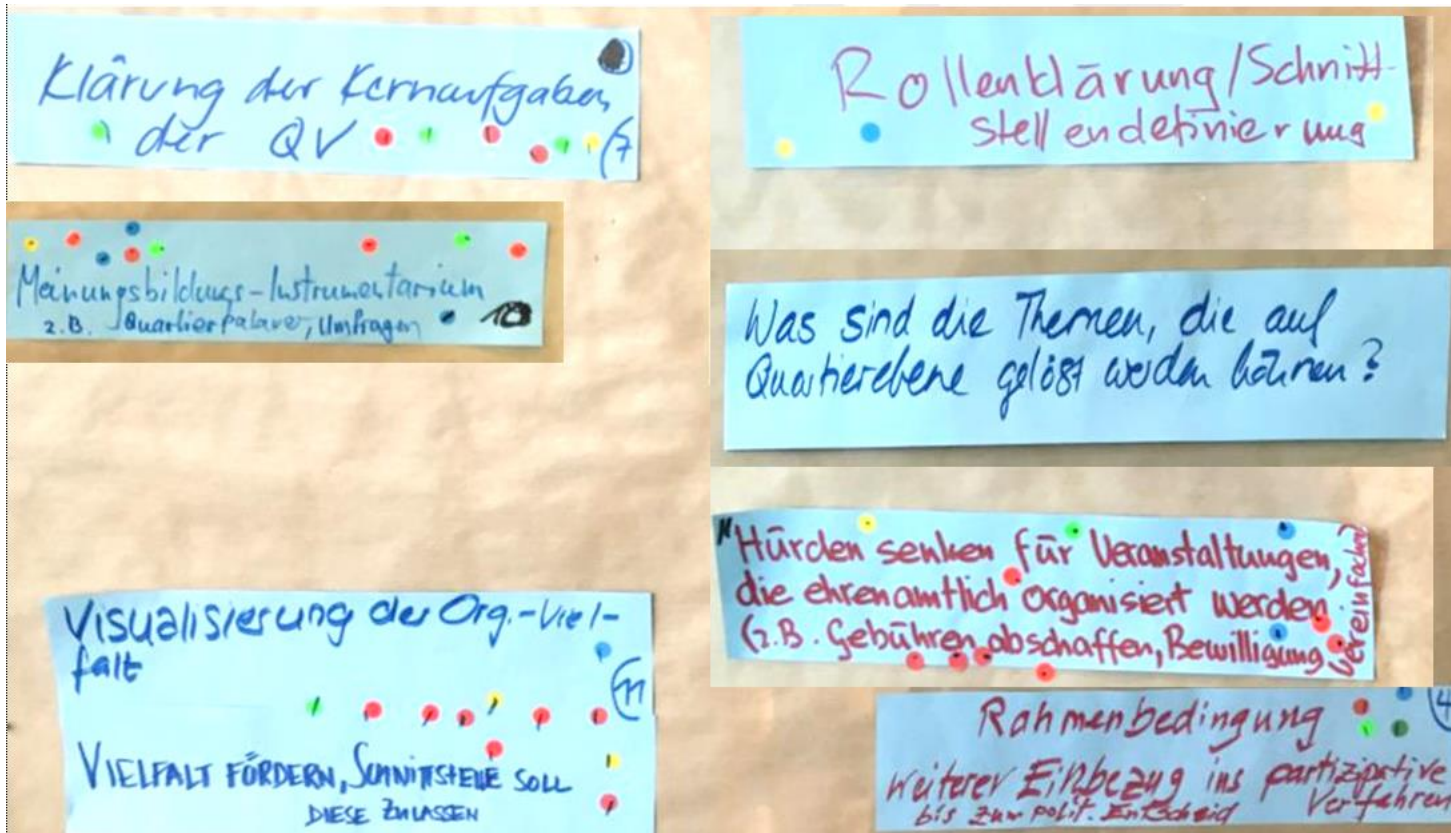 Klärung der Kernaufgaben
der QV
(7
Meinungsbildungs-Instrumentarium
z.B. Quartierpalaver, Umfragen
10
Visualisierung der Org.-Viel-
falt
11
VIELFALT FÖRDERN, SCHNITTSTELLE SOLL
DIESE ZULASSEN
Rollenklärung/Schnitt-
stellendefinierung
Was sind die Themen, die auf
Quartierebene gelöst werden können?
Hürden senken für Veranstaltungen,
die ehrenamtlich organisiert werden
(z.B. Gebühren abschaffen, Bewilligung
vereinfachen)
Rahmenbedingung
4
weiterer Einbezug ins partizipative
bis zum polit. Entscheid Verfahren